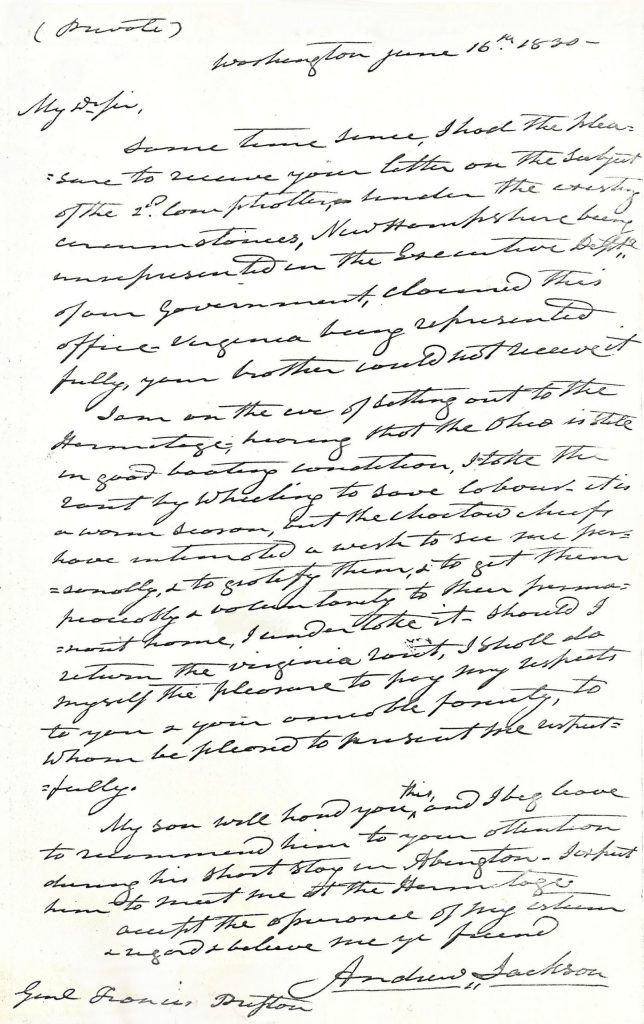 (Private)
Washington June 16th 1830-
My Dr Sir,
Some time since, I had the plea=
=sure to receive your letter on the subject
of the 2d. Comptroller, under the existing
circumstances, New Hampshire being
unrepresented in the Executive Dept.
of our government, claimed this
office- Virginia being represented
fully, your brother could not receive it
I am on the eve of setting out to the
Hermitage, hearing that the Ohio is still
in good boating condition, I take the
rout by Wheeling to save labour- it is
a warm season, but the choctaw chiefs
have intimated a wish to see me per=
=sonally, & to gratify them, & to get them
peaceably & voluntarily to their perma=
=nent home, I undertake it- should I
return the virginia rout, I shall do
myself the pleasure to pay my respects
to you & your amiable family, to
whom be pleased to present me respect=
=fully.
My son will hand you this, and I beg leave
to recommend him to your attention
during his short stay in Abington- I expect
him to meet me at the Hermitage
accept the assurance of my esteem
& regard & believe me yr friend
Andrew Jackson
Genl Francis Preston